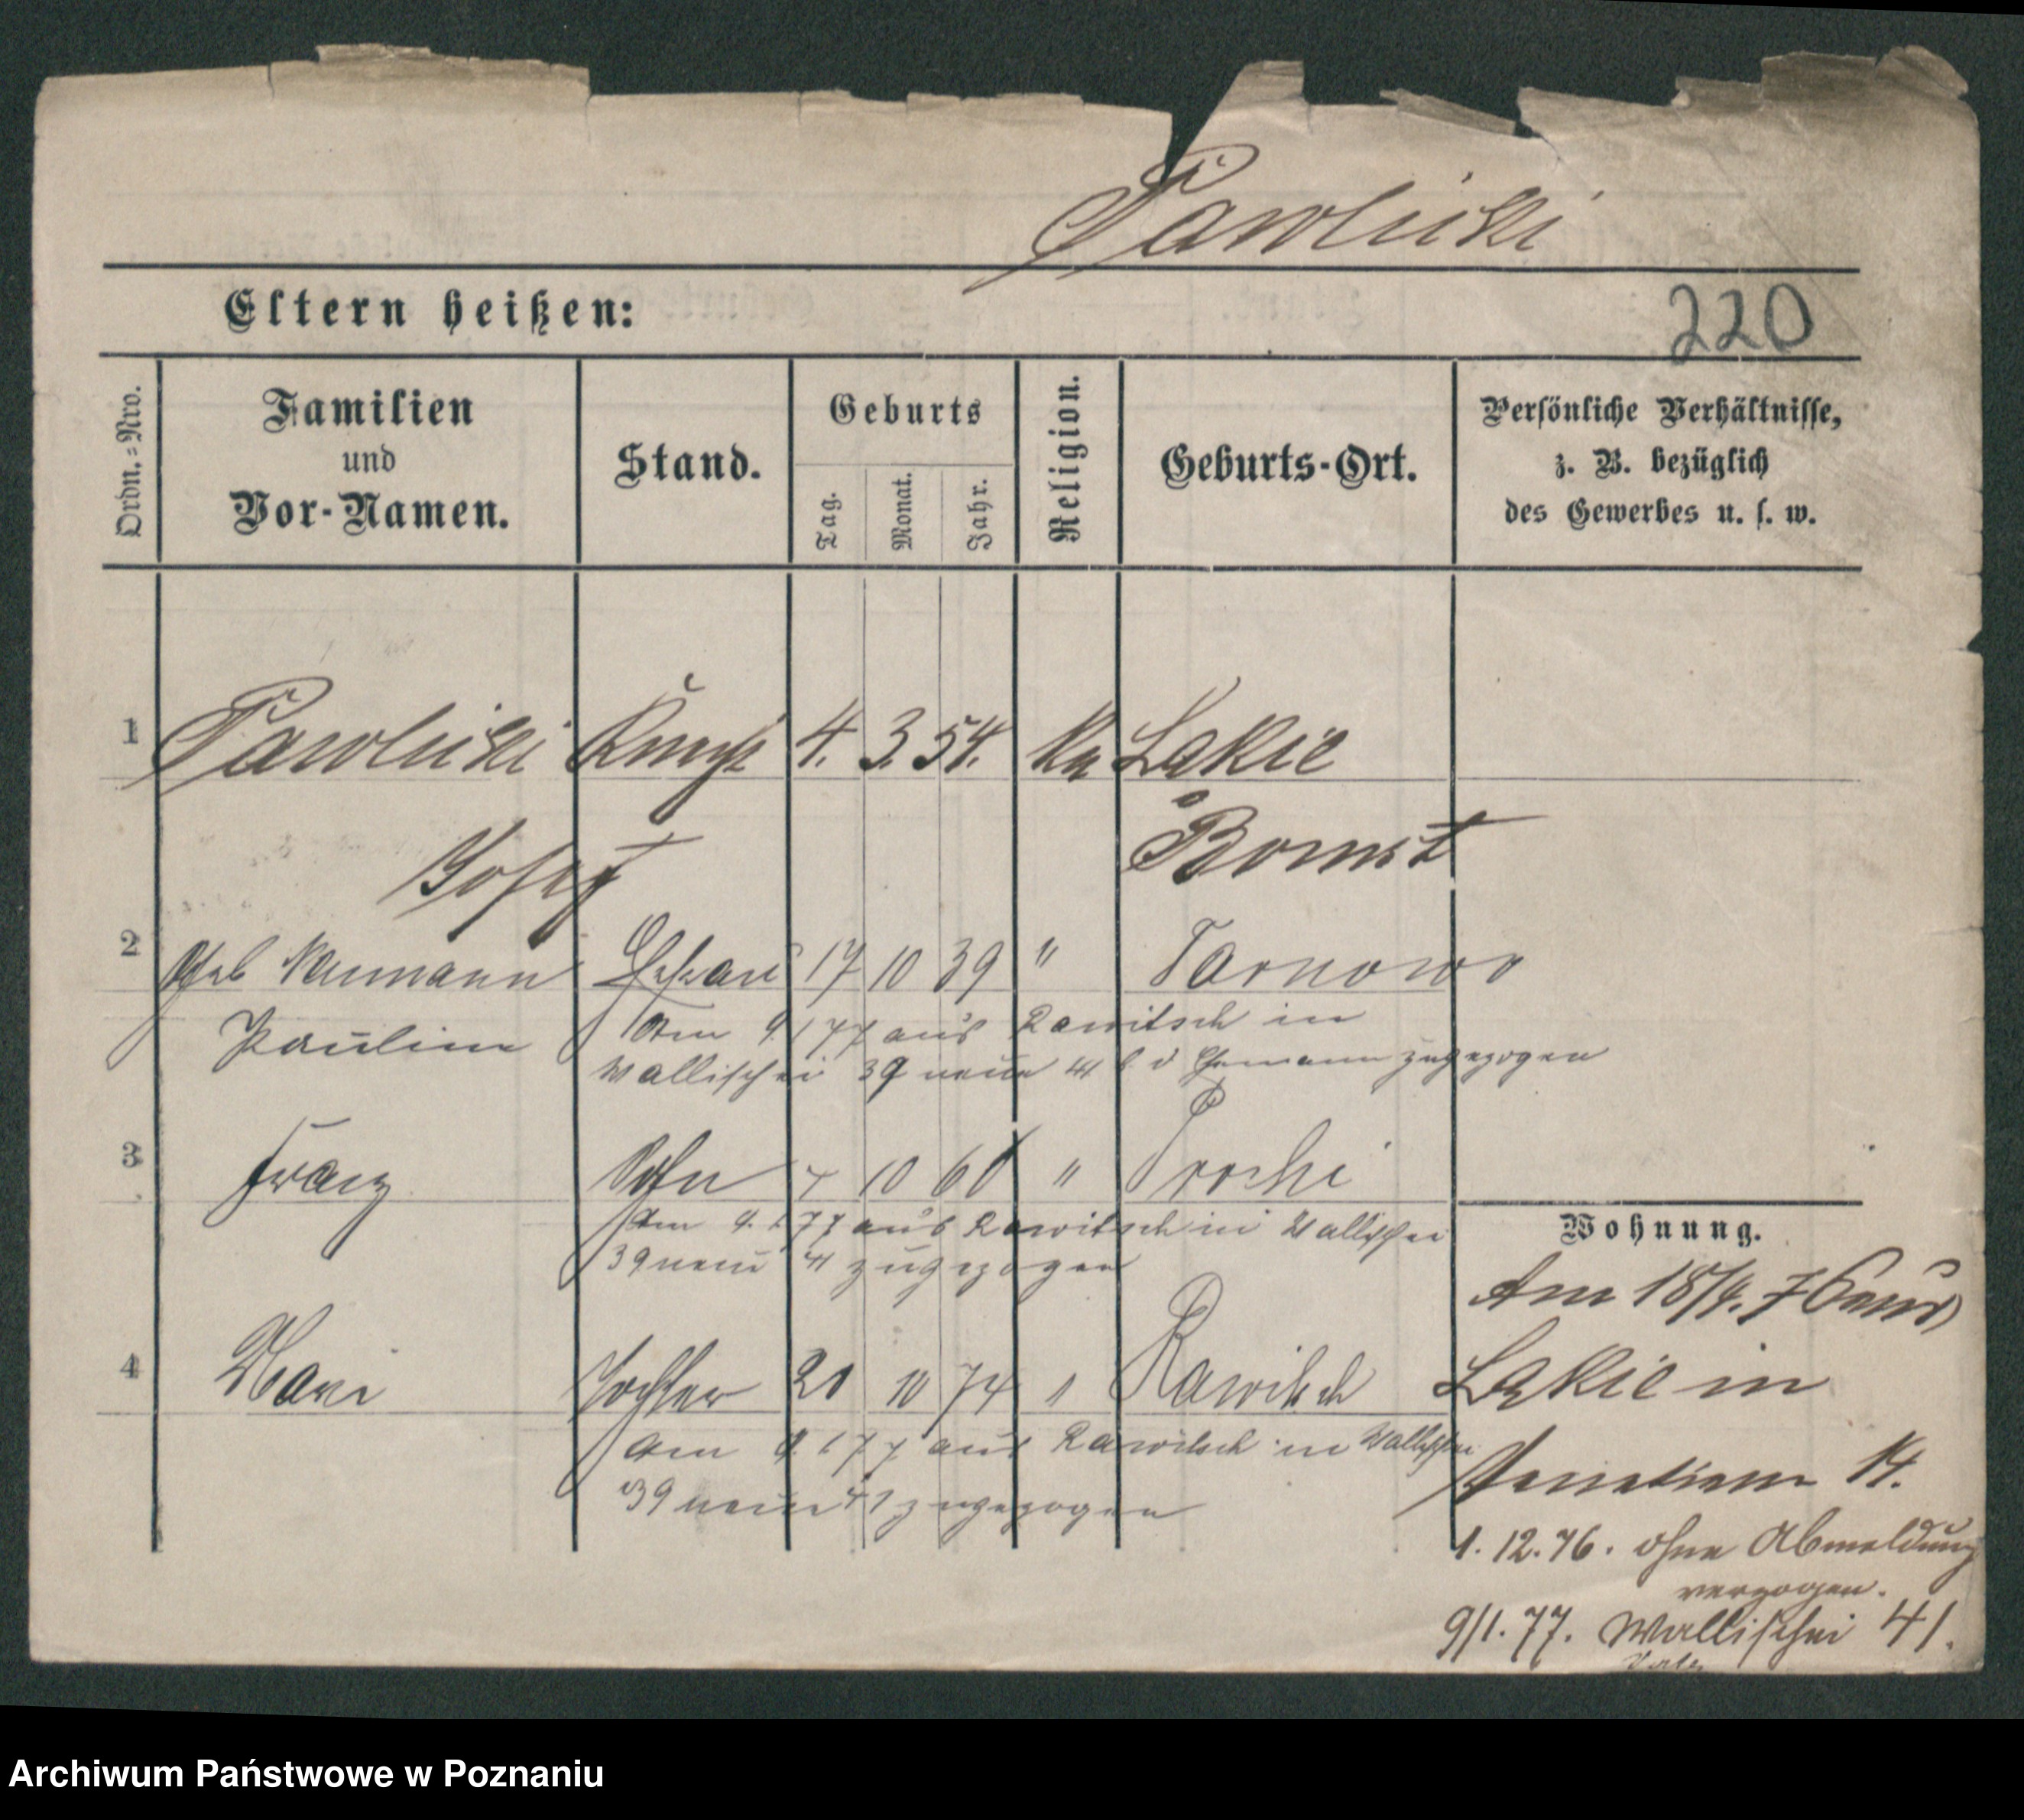 Pawlicki
Eltern heißen:
220
Ordn.=Nro.
Familien
und
Vor-Namen.
Stand.
Geburts
Tag.
Monat.
Jahr.
Religion.
Geburts-Ort.
Persönliche Verhältnisse,
z. B. bezüglich
des Gewerbes u. s. w.
1 Pawlicki 4. 3. 54. Lakie
Josef Bomst
2 geb Naumann Ehefrau 17 10 39 " Tarnowo
Pauline Am 9. 1 77 aus Rawitsch in
Wallischei 39 neue 41 b d Ehemann zugezogen
3 Franz Sohn 4 10 61 "
Am 9. 1 77 aus Rawitsch in Wallischei
39 neue 41 zugezogen
Wohnung.
Am 18/4. 76 aus
4 Mari Tochter 21 10 74 " Rawitsch
Lakie in
Am 9. 1 77 aus Rawitsch in Wallischei
Venetianer 14.
39 neue 41 zugezogen
1. 12. 76. ohne Abmeldung
verzogen.
9/1. 77. Wallischei 41.
Archiwum Państwowe w Poznaniu